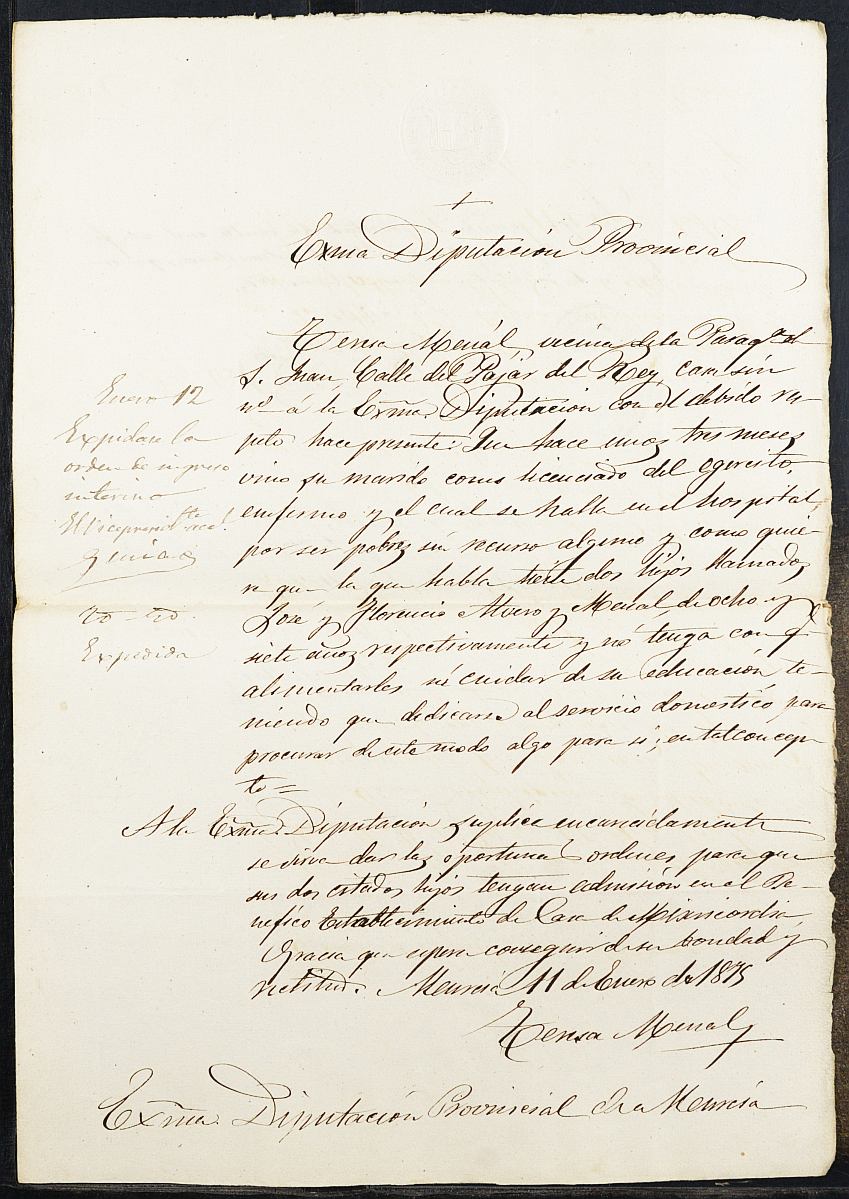 +
Exma Diputación Provincial
Teresa Menál, vecina de la Paroq.ª de
S. Juan, Calle del Pajár del Rey, casa sin
nº á la Exma. Diputacion con el debido res-
peto hace presente: Que hace unos tres meses
vino su marido como licenciado del egercito,
enfermo y el cual se halla en el hospital,
por ser pobre sin recurso alguno y como quie-
ra que la que habla tiene dos hijos llamados
José y Florencio Alvero y Menal, de ocho y
siete años respectivamente y no tenga con q.e
alimentarles ni cuidar de su educación te-
niendo que dedicarse al servicio domestico para
procurar de este modo algo para si; en tal concep-
to=
A la Exma. Diputación suplica encarecidamente
se sirva dar las oportunas ordenes para que
sus dos citados hijos tengan admisión en el Be-
nefico Establecimiento de Casa de Misericordia
Gracia que espera conseguir de su bondad y
rectitud. Murcia 11 de Enero de 1875
Teresa Menal
Exma. Diputación Provincial de Murcia
Enero 12
Expidase la
orden de ingreso
interino
El Vicepresid.te acal.
Expedida